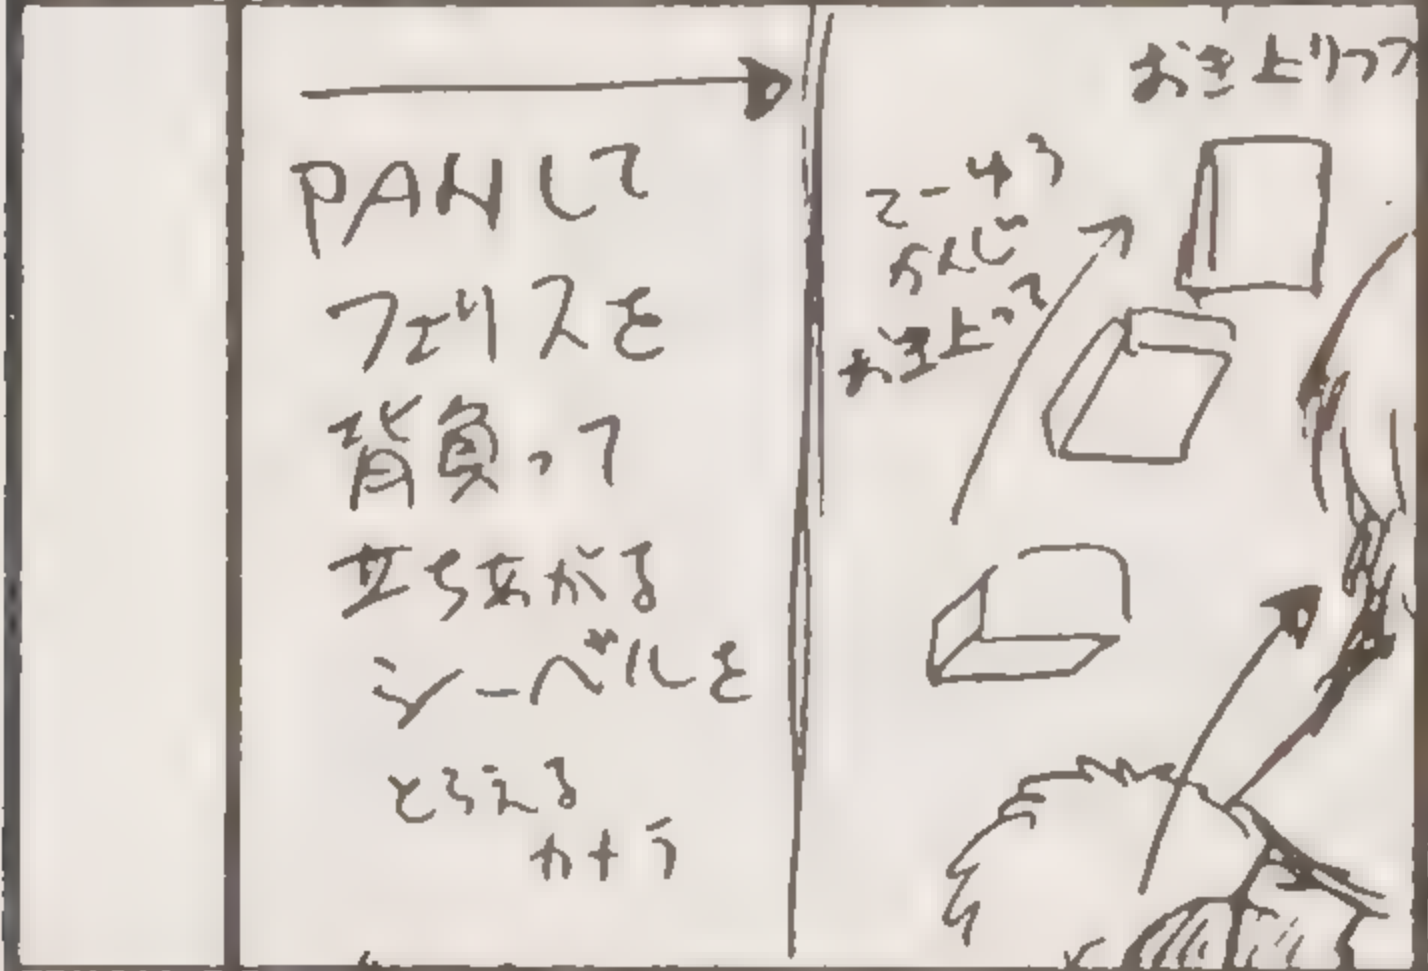 PANして
フェリスを
背負って
立ちあがる
シーベルを
とらえる
カメラ
おき上りつつ
こーゆう
かんじ
おき上って